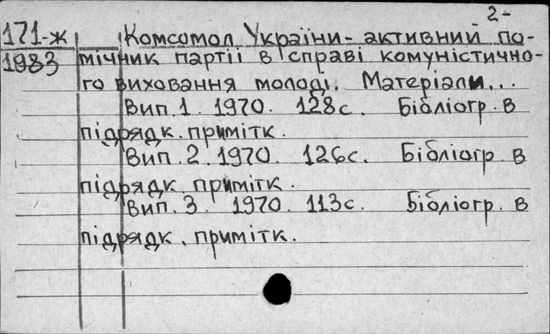 2-
171-ж Комсомол України - активний по-
1983 мічник партії в справі комуністично-
го виховання молоді. Матеріали...
Вип. 1. 1970. 128с. Бібліогр. в
підрядк. примітк.
Вип. 2. 1970. 126с. Бібліогр. в
підрядк. примітк.
Вип. 3. 1970. 113с. Бібліогр. в
підрядк. примітк.